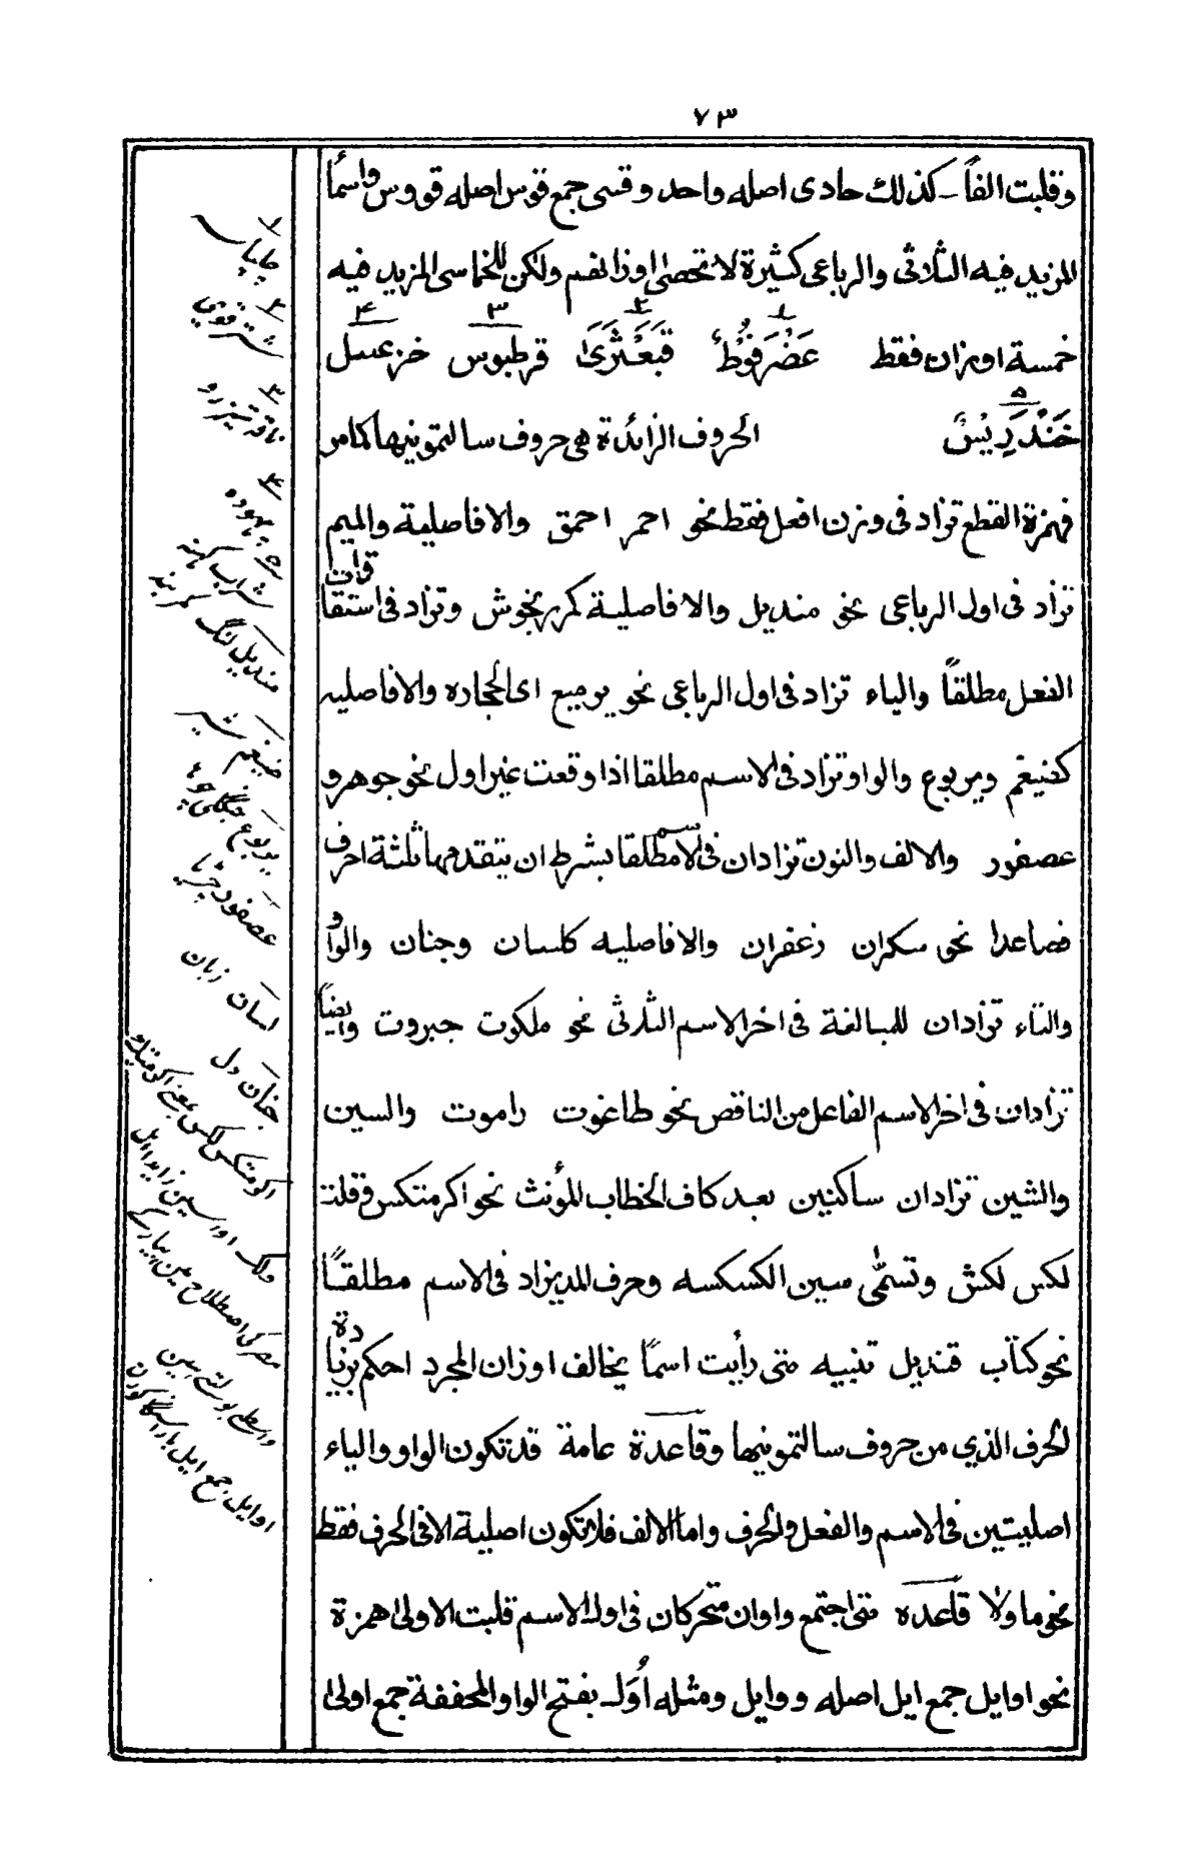 ٧٣
وقلبت الفاً ـ كذلك حادى اصله واحد وقسى جمع قوس اصله قووس واسماً
المزيد فيه الثلاثى والرباعى كثيرة لا تحصىٰ اوزانهم ولكن للخماسى المزيد فيه
خمسة اوزان فقط عَضْرَفُوْطٌ قَبَعْثَرَىٰ قرطبوس خزعبيل
خَنْدَرِيْسٌ الحروف الزائدة هى حروف سالتمونيها كما مر
فهمزة القطع تزاد فى وزن افعل فقط نحو احمر احمق والا فاصلية والميم
تزاد فى اول الرباعى نحو منديل والا فاصلية كمرزنجوش وتزاد فى استقاقات
الفعل مطلقاً والياء تزاد فى اول الرباعى نحو يرميع اى الحجاره والا فاصليه
كضيغم ويربوع والواو تزاد فى الاسم مطلقا اذا وقعت غير اول نحو جوهر و
عصفور والالف والنون تزادان فى الاسم مطلقا بشرط ان يتقدمهما ثلثة احرف
فصاعدا نحو سكران زعفران والا فاصليه كلسان وجنان والواو
والتاء تزادان للمبالغة فى اخر الاسم الثلاثى نحو ملكوت جبروت وايضاً
تزادان فى اخر الاسم الفاعل من الناقص نحو طاغوت راموت والسين
والشين تزادان ساكنين بعد كاف الخطاب للمؤنث نحو اكرمتكس وقلت
لكس لكش وتسمّى سين الكسكسه وحرف المد يزاد فى الاسم مطلقًا
نحو كتاب قنديل تنبيه متى رأيت اسماً يخالف اوزان المجرد احكم بزيادة
الحرف الذي من حروف سالتمونيها وقاعدة عامة قد تكون الواو والياء
اصليتين فى الاسم والفعل والحرف واما الالف فلا تكون اصلية الا فى الحرف فقط
نحو ما ولا قاعده متى اجتمع واوان متحركان فى اول الاسم قلبت الاولىٰ همزة
نحو اوايل جمع ايل اصله ووايل ومثله اُوَل بفتح الواو المخففة جمع اولىٰ
١
چلپاسہ
٢
شتر قوي
٣
ناقہ تيز رو
٤
بيهوده
٥
شراب كہنہ
منديل لنگ كمر بند
ضيغم شير
يربوع جنگلى چوہا
عصفور چڑيا
لسان زبان
جنان دل